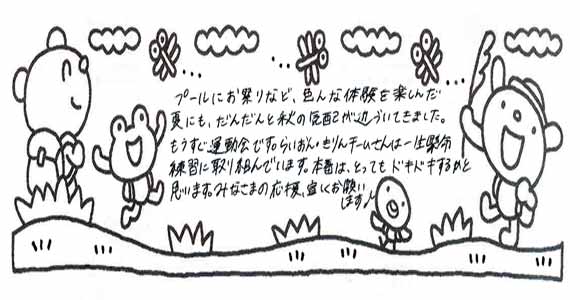 プールにお祭りなど、色んな体験を楽しんだ
夏にも、だんだんと秋の気配が近づいてきました。
もうすぐ運動会です。らいおん・きりんチームさんは一生懸命
練習に取り組んでいます。本番は、とってもドキドキするかと
思います。みなさまの応援、宜しくお願い
します♪